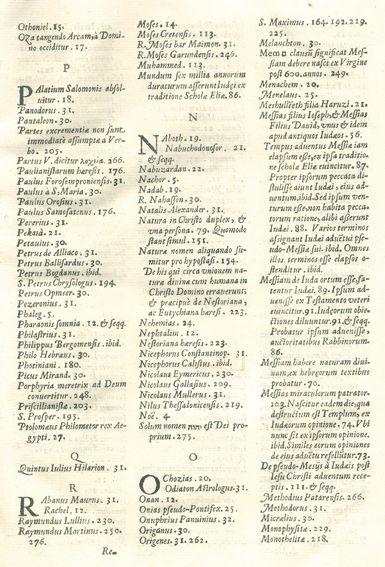 Othoniel. 15.
Oza tangendo Arcam, à Domi-
no occiditur. 17.
P
Palatium Salomonis absol-
uitur. 18.
Panodorus. 31.
Pantaleon. 30.
Partes excrementiæ non sunt
immediatè assumptæ a Ver-
bo. 205.
Partus V. dicitur λοχια. 266.
Paulianistarum hæresis. 176.
Paulus Forosemproniensis. 31.
Paulus à S. Maria. 30.
Paulus Orosius. 31.
Paulus Samosatenus. 176.
Pererius. 31.
Pekaia. 21.
Petauius. 30.
Petrus de Alliaco. 31.
Petrus Ballisardus. 30.
Petrus Bogdanus. ibid.
S. Petrus Chrysologus. 194.
Petrus Opmeer. 30.
Pezronius. 31.
Phaleg. 5.
Pharaonis somnia. 12. & seqq.
Philastrius. 31.
Philippus Bergomensis. ibid.
Philo Hebræus. 30.
Photiniani. 180.
Picus Mirand. 30.
Porphyria meretrix ad Deum
conuertitur. 248.
Priscillianistæ. 203.
S. Prosper. 195.
Ptolomæus Philometor rex Ae-
gypti. 27.
Q
Quintus Iulius Hilarion. 31.
R
Rabanus Maurus. 31.
Rachel. 12.
Raymundus Lullius. 230.
Raymundus Martinus. 250.
276.
Re=
Moses. 14.
Moses Cretensis. 113.
R. Moses bar Maimon. 31.
R. Moses Garundensis. 246.
Muhammed. 113.
Mundum sex millia annorum
duraturum asserunt Iudæi ex
traditione Scholæ Eliæ. 86.
N
Naboth. 19.
Nabuchodonosor. 21.
& seqq.
Nabuzardan. 22.
Nachor. 5.
Nadab. 19.
R. Nahasson. 30.
Natalis Alexander. 31.
Natura in Christo duplex, &
vna persona. 79. Quomodo
stant simul. 151.
Naturæ nomen aliquando su-
mitur pro hypostasi. 154.
De his qui circa vnionem na-
turæ diuinæ cum humana in
Christo Domino errauerunt
& præcipuè de Nestoriana,
ac Eutychiana hæresi. 223.
Nehemias. 24.
Nephtalim. 12.
Nestoriana hæresis. 223.
Nicephorus Constantinop. 31.
Nicephorus Calistus. ibid.
Nicolaus Eymericus. 230.
Nicolaus Gallasius. 209.
Nicolaus Mullerus. 31.
Nilus Thessalonicensis. 219.
Noè. 4
Solum nomen יהוה est Dei pro-
prium. 275.
O
Ochozias. 20.
Odiaton Astrologus. 31.
Onan. 12.
Onias pseudo-Pontifex. 25.
Onuphrius Panuinius. 32.
Origanus. 30.
Origenes. 31. 262.
S. Maximus. 164. 192. 219.
225.
Melancthon. 30.
Mem ם clausũ significat Mes-
siam debere nasci ex Virgine
post 600. annos. 249.
Menachem. 20.
Menelaus. 25.
Methussæleth filia Haruzi. 21.
Messias filius Ioseph, & Messias
Filius Dauid, vnus & idem
apud antiquos Iudæos. 56.
Tempus aduentus Messiæ iam
elapsum esse, ex ipsa traditio-
ne Scholæ Eliæ euincitur. 87.
Propter ipsorum peccata di-
stulisse aiunt Iudæi, eius ad-
uentum. ibid. Sed ipsum ven-
turum esse non habita pecca-
torum ratione, alibi asserunt
Iudæi. 88. Varios terminos
assignant Iudæi aduentui pse-
udo-Messiæ sui. ibid. Omnes
illas terminos esse elapsos o-
stenditur. ibid.
Messiam de Iuda ortum esse fa-
tentur Iudæi. 89. Ipsum ad-
uenisse ex Testamento veteri
euincitur. 91. Iudæorum obie-
ctiones diluuntur. 91. & seqq.
Probatur ipsum aduenisse,
auctoritatibus Rabbinorum.
86.
Messiam habere naturam diui-
nam, ex hebræorum textibus
probatur. 70.
Messias miraculorum patrator.
103. Nascitur eadem die, qua
destructum est Templum, ex
Iudæorum opinione. 74. Vbi
nunc sit ex ipsorum opinione.
ibid. Similes eorum opiniones
de eius aduẽtu refellitur. 73.
De pseudo-Messijs à Iudæis post
Iesu Christi aduentum rece-
ptis. 111. & seqq.
Methodius Patarensis. 266.
Methodorus. 31.
Micrælius. 30.
Monophysitæ. 229.
Monothelitæ. 218.